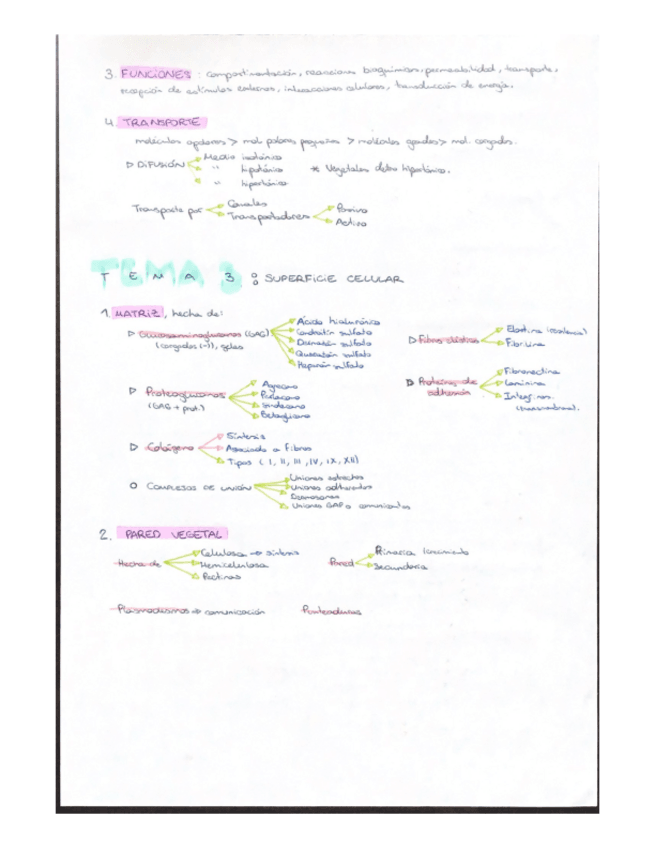 3. FUNCIONES : compartimentación, reacciones bioquímicas, permeabilidad, transporte,
recepción de estímulos externos, interacciones celulares, transducción de energía.
4. TRANSPORTE
moléculas apolares > mol. polares pequeñas > moléculas grandes > mol. cargadas.
▷ DIFUSIÓN
Medio isotónico
" hipotónico
" hipertónico
* Vegetales debe hipotónico.
Transporte por
Canales
Transportadores
Pasivo
Activo
TEMA 3 : SUPERFICIE CELULAR
1. MATRIZ, hecha de:
▷ Glucosaminoglucanos (GAG)
(cargados (-)), geles
Ácido hialurónico
Condroitín sulfato
Dermatán sulfato
Queratán sulfato
Heparán sulfato
▷ Fibras elásticas
Elastina (resistencia)
Fibrilina
▷ Proteoglucanos
(GAG + prot.)
Agrecano
Perlecano
Sindecano
Betaglicano
▷ Proteínas de
adhesión
Fibronectina
Laminina
Integrinas
(transmembrana).
▷ Colágeno
Síntesis
Asociado a fibras
Tipos ( I, II, III, IV, IX, XII)
O COMPLEJOS DE UNIÓN
Uniones estrechas
Uniones adherentes
Desmosomas
Uniones GAP o comunicantes
2. PARED VEGETAL
Hecha de
Celulosa → síntesis
Hemicelulosa
Pectinas
Pared
Primaria (crecimiento
Secundaria
Plasmodesmos → comunicación
Punteaduras